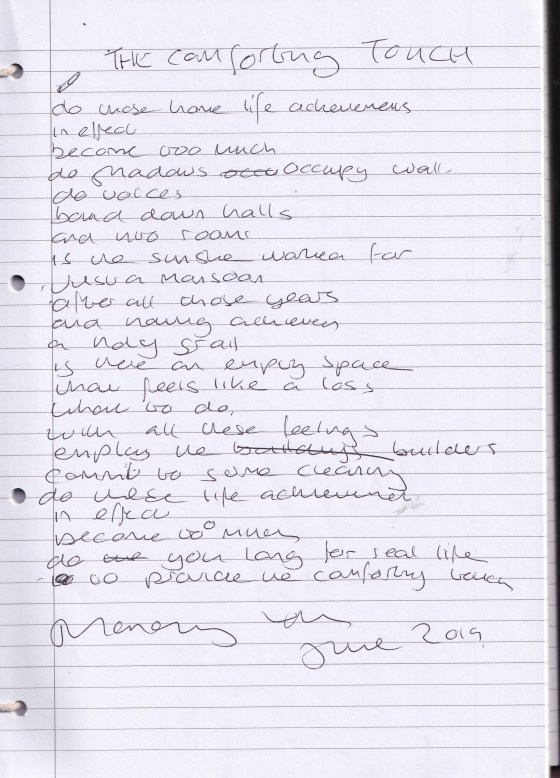 THE comforting TOUCH
do those home life achievements
in effect
become too much
do shadows occupy wall
do voices
bound down halls
and into rooms
is the sunshine wanted for
just a monsoon
after all those years
and having achieved
a holy grail
is there an empty space
that feels like a loss
what to do,
with all these feelings
employ the buildings builders
commit to some cleaning
do these life achievements
in effect
become too much
do you long for real life
to provide the comforting touch
June 2019